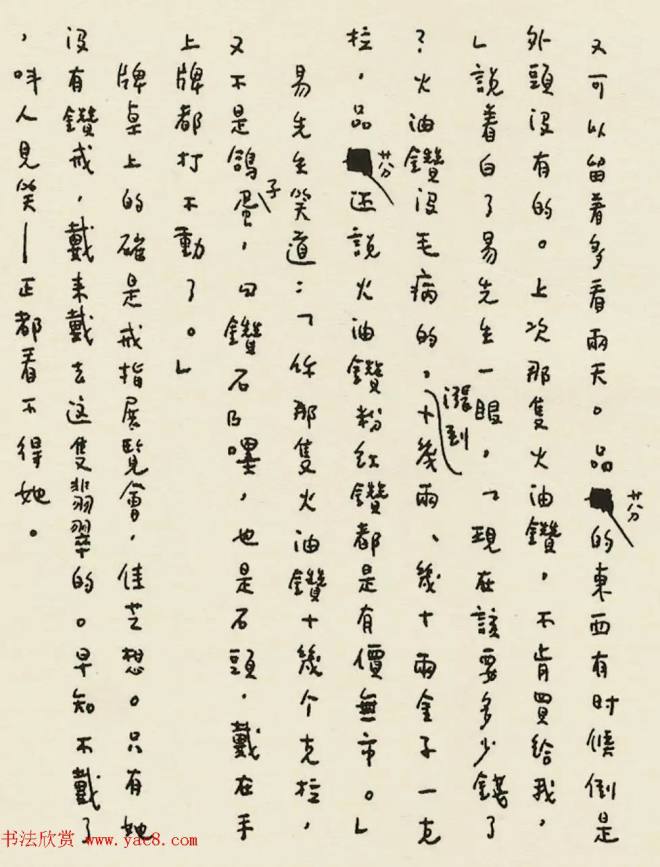 又可以留着多看兩天。品芬的東西有时候倒是
外頭没有的。上次那隻火油鑽，不肯買給我，
」說着白了易先生一眼，「現在該要多少錢了
？火油鑽没毛病的，漲到十幾兩、幾十兩金子一克
拉，品芬还說火油鑽粉紅鑽都是有價無市。」
易先生笑道：「你那隻火油鑽十幾个克拉，
又不是鴿子蛋，『鑽石』嚜，也是石頭，戴在手
上牌都打不動了。」
牌桌上的確是戒指展覽會，佳芝想。只有她
没有鑽戒，戴来戴去这隻翡翠的。早知不戴了
，叫人見笑—正都看不得她。
书法欣赏 www.yac8.com